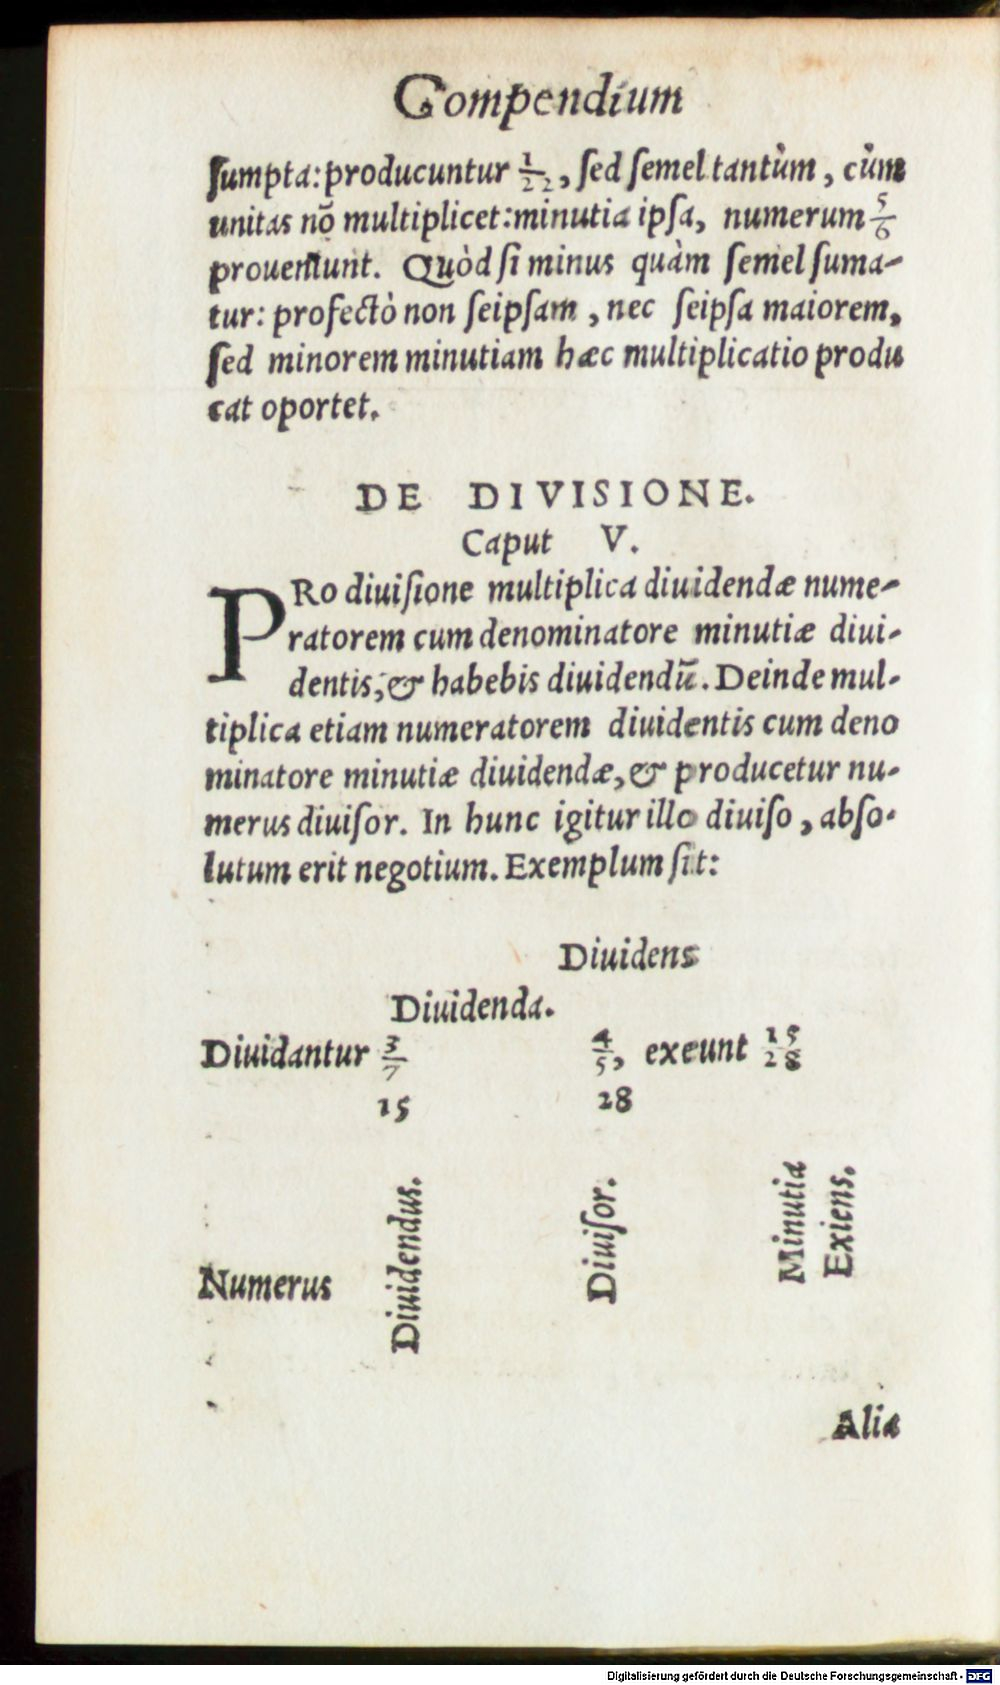 Compendium
ſumpta: producuntur 1/22, ſed ſemel tantùm, cùm
unitas nõ multiplicet: minutia ipſa, numerum 5/6
proueniunt. Quòd ſi minus quàm ſemel ſuma-
tur: profectò non ſeipſam, nec ſeipſa maiorem,
ſed minorem minutiam hæc multiplicatio produ
cat oportet.
DE DIVISIONE.
Caput V.
PRo diuiſione multiplica diuidendæ nume-
ratorem cum denominatore minutiæ diui-
dentis, & habebis diuidendũ. Deinde mul-
tiplica etiam numeratorem diuidentis cum deno
minatore minutiæ diuidendæ, & producetur nu-
merus diuiſor. In hunc igitur illo diuiſo, abſo-
lutum erit negotium. Exemplum ſit:
Diuidens
Diuidenda.
Diuidantur 3/7 4/5, exeunt 15/28
15 28
Numerus Diuidendus. Diuiſor. Minutia Exiens.
Alia
Digitalisierung gefördert durch die Deutsche Forschungsgemeinschaft - DFG